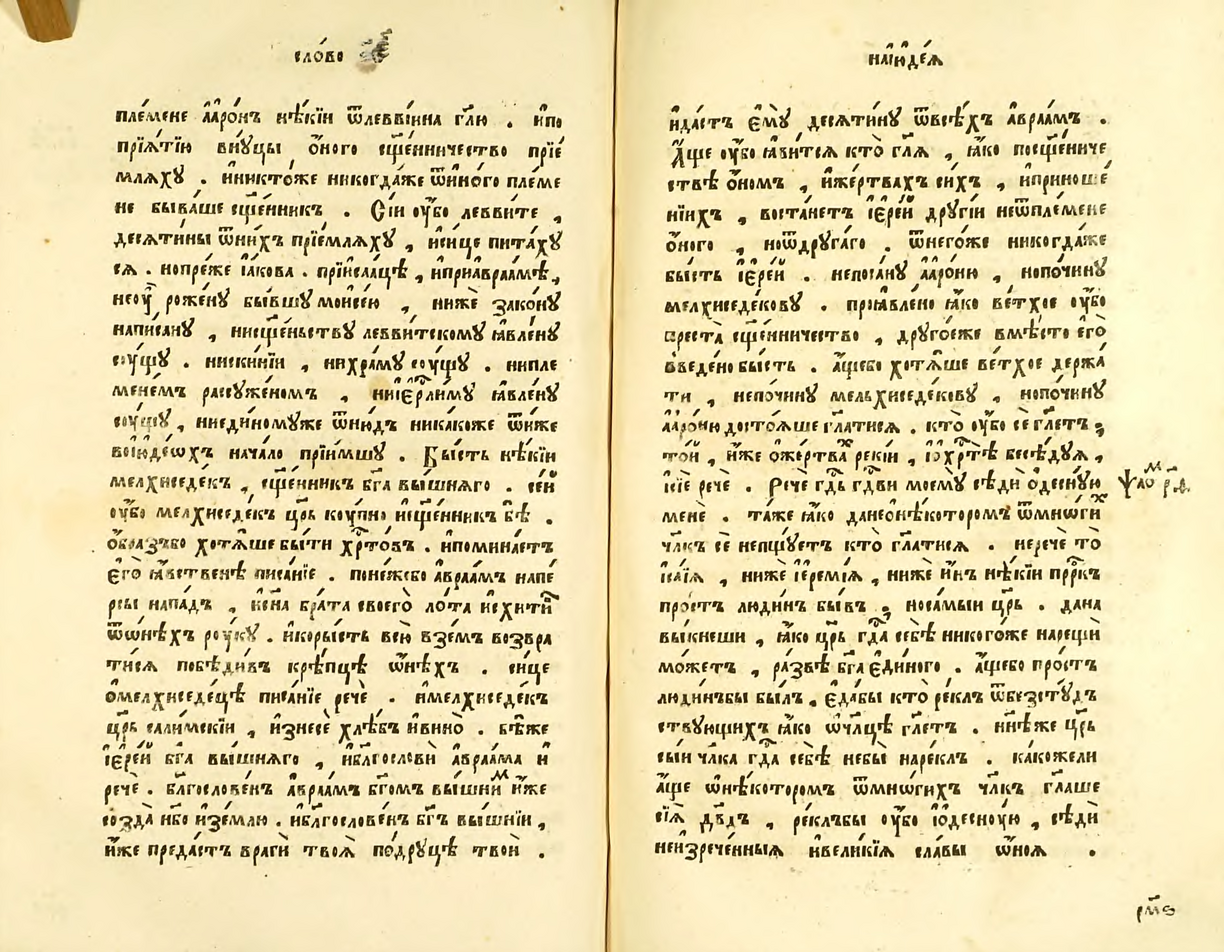 сло́во
пле́мене а҆аро́нъ нѣ́кїи ѿлеввїина гл҃ю . ипо
прїѧ́тїю вну́цы о҆ного сщ҃е́нничество прїе́
млѧхꙋ . и҆никто́же никогда́же ѿи҆но́го пле́ме
не быва́ше сщ҃е́нникъ . Сїи ᲂу҆́бо левви́те ,
десѧти́ны ѿни́хъ прїе́млѧхꙋ , и҆си́це пита́хꙋ
сѧ . нопре́же і҆а́кова . прїи҆саа́цѣ , и҆приа҆враа́мѣ ,
неоу҆̀ роже́нꙋ бы́вшꙋ моисе́ю , ни́же зако́нꙋ
напи́санꙋ , нисщ҃е́ньствꙋ левви́тскомꙋ ꙗ҆вле́нꙋ
соу́щꙋ . ниски́нїи , нихра́мꙋ соу́щꙋ . нипле
менемъ разсꙋже́номъ , нїи҆ерⷭ҇ли́мꙋ ꙗ҆вле́нꙋ
соу́щꙋ , ниеди́номꙋже ѿи҆ю́дъ ника́коже ѿи́же
вои҆ю҆де́ѡхъ нача́ло прїи́мшꙋ . Бы́сть нѣ́кїи
мелхиседе́къ , сщ҃е́нникъ бг҃а вы́шнѧго . се́и
ᲂу҆́бо мелхиседе́къ цр҃ь коу́пно и҆сщ҃е́нникъ бѣ̀ .
о҆бразъбо хотѧ́ше бы́ти хрⷭ҇то́въ . и҆помина́етъ
е҆го̀ ꙗ҆́вственѣ писа́нїе . поне́жебо а҆враа́мъ напе́
рсы напа́дъ , и҆сѝна бра́та своего̀ ло́та и҆схити́
ѿѡ҆нѣ́хъ роукꙋ̀ . и҆коры́сть всю взе́мъ возвра
ти́сѧ побѣди́въ крѣ́пцѣ ѡ҆нѣ́хъ . си́це
о҆мелхиседе́цѣ писа́нїе речѐ . и҆мелхиседе́къ
цр҃ь сали́мскїи , и҆знесѐ хлѣ́бъ и҆вино̀ . бѣ́же
і҆ере́й бг҃а вы́шнѧго , и҆благослови̾ а҆враа́ма и҆
речѐ . благослове́нъ а҆враа́мъ бг҃омъ вы́шнимъ и҆́же
созда̀ нб҃о и҆зе́млю . и҆благослове́нъ бг҃ъ вы́шнїи ,
и҆́же преда́стъ врагѝ твоѧ̀ подрꙋ́цѣ твои̾ .
наї҆ю҆де́ѧ
и҆да́стъ е҆мꙋ̀ десѧти́нꙋ ѿвсѣ́хъ а҆враа́мъ .
А҆́ще ᲂу҆́бо ꙗ҆ви́тсѧ кто̀ гл҃ѧ , ꙗ҆́ко посщ҃е́нниче
ствѣ о҆номъ , и҆же́ртвахъ си́хъ , и҆приноше́
нїихъ , воста́нетъ і҆ере́й дрꙋгі́и неѿпле́мене
о҆ного , ноѿдрꙋга́го . ѿнего́же никогда́же
бы́сть і҆ере́й . непочи́нꙋ а҆аро́ню , нопочи́нꙋ
мелхиседе́ковꙋ . проꙗ҆вле́но ꙗ҆́ко ве́тхое ᲂу҆́бо
преста̀ сщ҃е́нничество , дрꙋго́еже вмѣ́сто е҆го̀
введено̀ бы́сть . а҆́щебо хотѧ́ше ве́тхое держа́
ти , непочи́нꙋ мельхиседе́ковꙋ , нопочи́нꙋ
а҆аро́ню досто́ѧше гл҃атисѧ . кто̀ ᲂу҆́бо се̾ гл҃етъ ;
то́и , и҆́же о҆же́ртвахъ реки́и , і҆охрⷭ҇тѣ̀ бесѣ́дꙋѧ ,
і҆сїѐ речѐ . Рече̾ гдⷭ҇ь гдⷭ҇ви моемꙋ̀ сѣди̾ одеснꙋ́ю
Ѱало́м р҃д .
менѐ . та́же ꙗ҆́ко данеонѣ́которомъ ѿмно́гихъ
чл҃къ се̾ непщꙋ́етъ кто̀ гл҃атисѧ . нерече̾ то̀
і҆са́їѧ , ни́же і҆еремі́ѧ , ни́же и҆́нъ нѣ́кїи прⷪ҇ркъ
про́стъ люди́нъ бы́въ ; носа́мыи цр҃ь . дана
вы́кнеши , ꙗ҆́ко цр҃ь гдⷭ҇а себѣ̀ никого́же нарещѝ
мо́жетъ , ра́звѣ бг҃а е҆ди́ного . а҆́щебо про́стъ
люди́нъбы бы́лъ , е҆да́бы кто̀ ре́клъ ѿбезстꙋ́дъ
ствꙋющихъ ꙗ҆́ко ѡ҆чл҃цѣ гл҃етъ . нн҃ѣже цр҃ь
сы́и чл҃ка гдⷭ҇а себѣ̀ небы наре́клъ . ка́кожели
а҆́ще ѡ҆нѣ́которомъ ѿмно́гихъ чл҃къ гл҃аше
сїѧ̀ дв҃дъ , ре́клъбы ᲂу҆́бо і҆ѻ҆десноу́ю , сѣдѝ
неизрече́нныѧ и҆вели́кїѧ сла́вы ѡ҆ноѧ .
рм҃ѕ